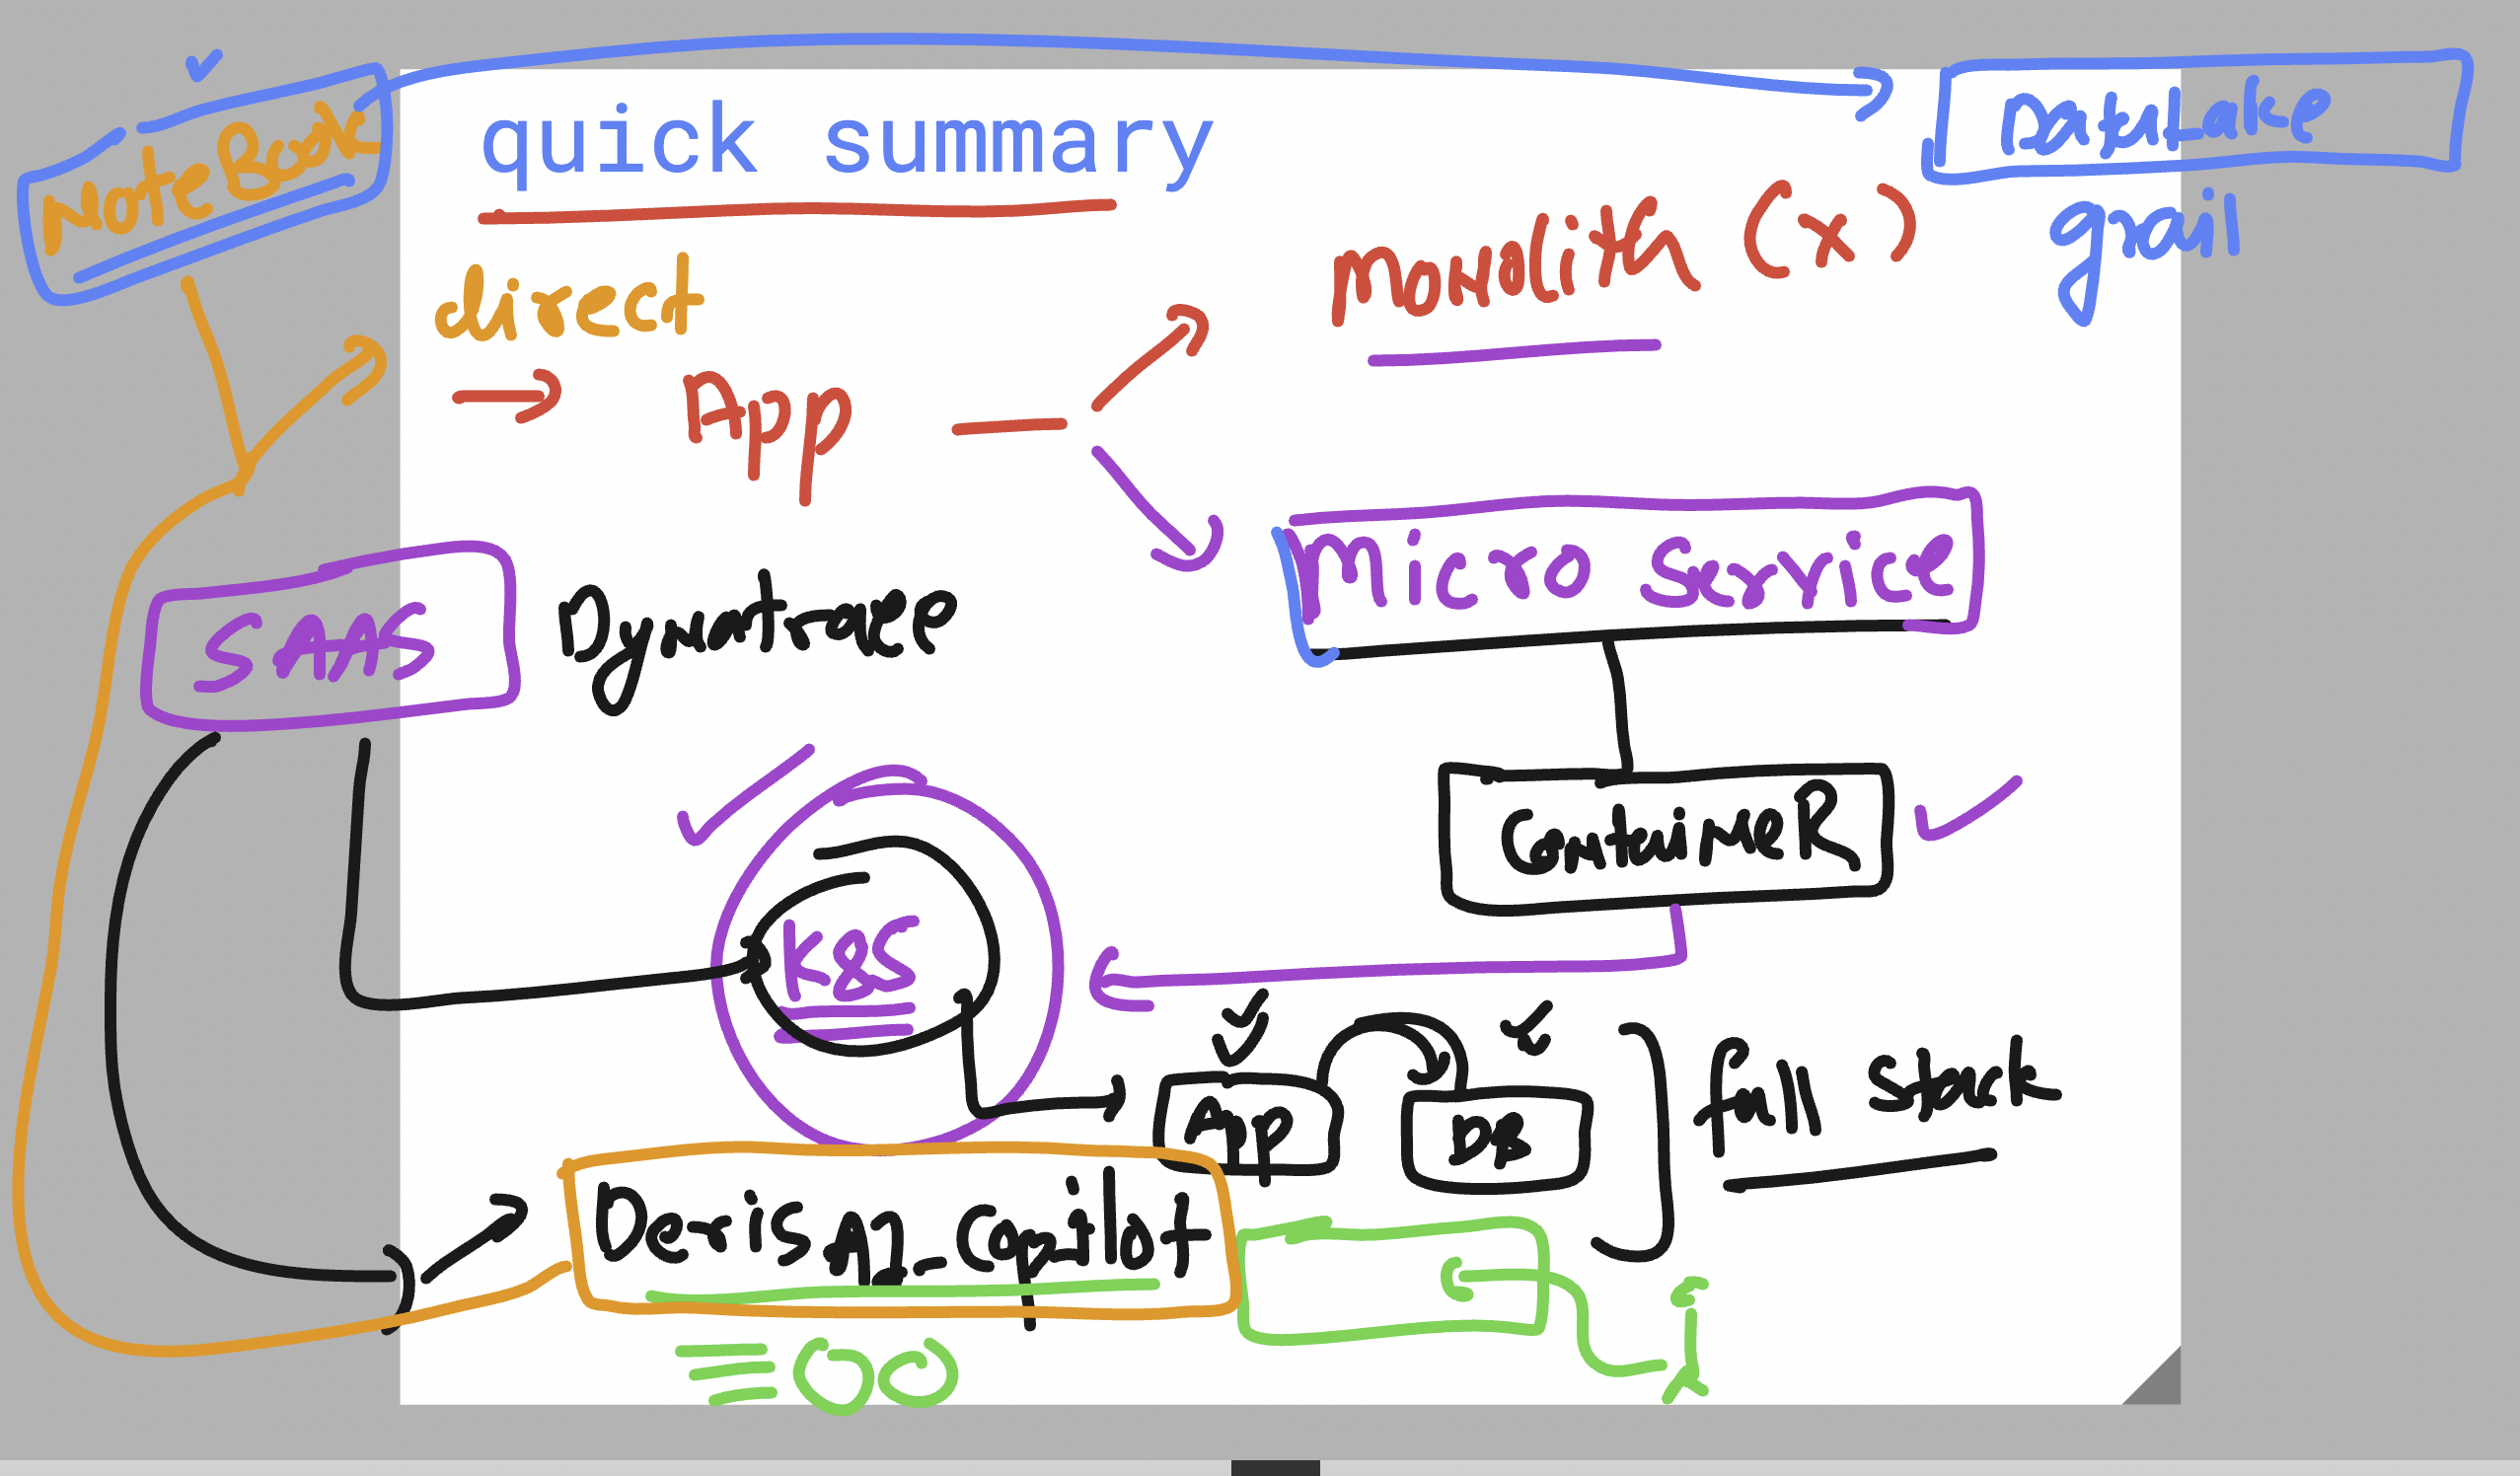 NoteBook
quick summary
DataLake
grail
direct
→ App
Monolith (x)
Micro Service
SAAS
Dynatrace
Container
K8S
App
DB
full stack
DevisAI_Copilot